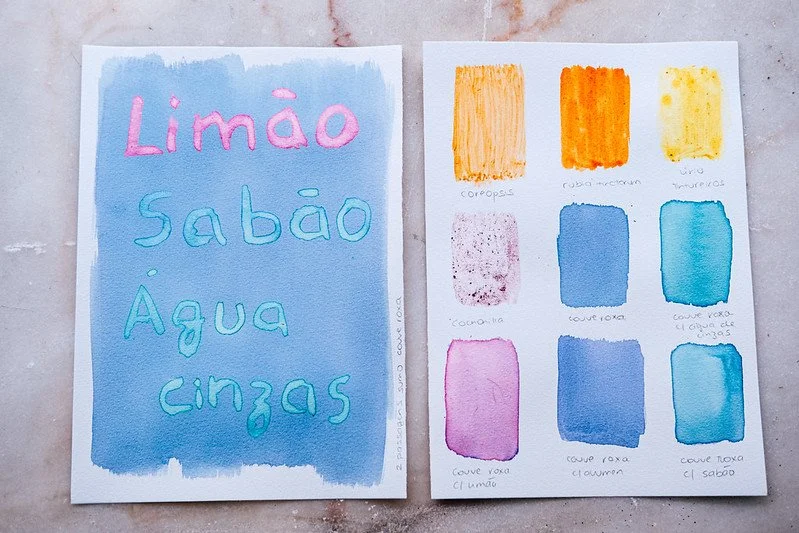 Limão
Sabão
Água
cinzas
2 passagens sumo couve roxa
coreopsis
rubia tinctorum
lírio
tintureiros
cochonilla
couve roxa
couve roxa
c/ água de
cinzas
couve roxa
c/ limão
couve roxa
c/ alumen
couve roxa
c/ sabão